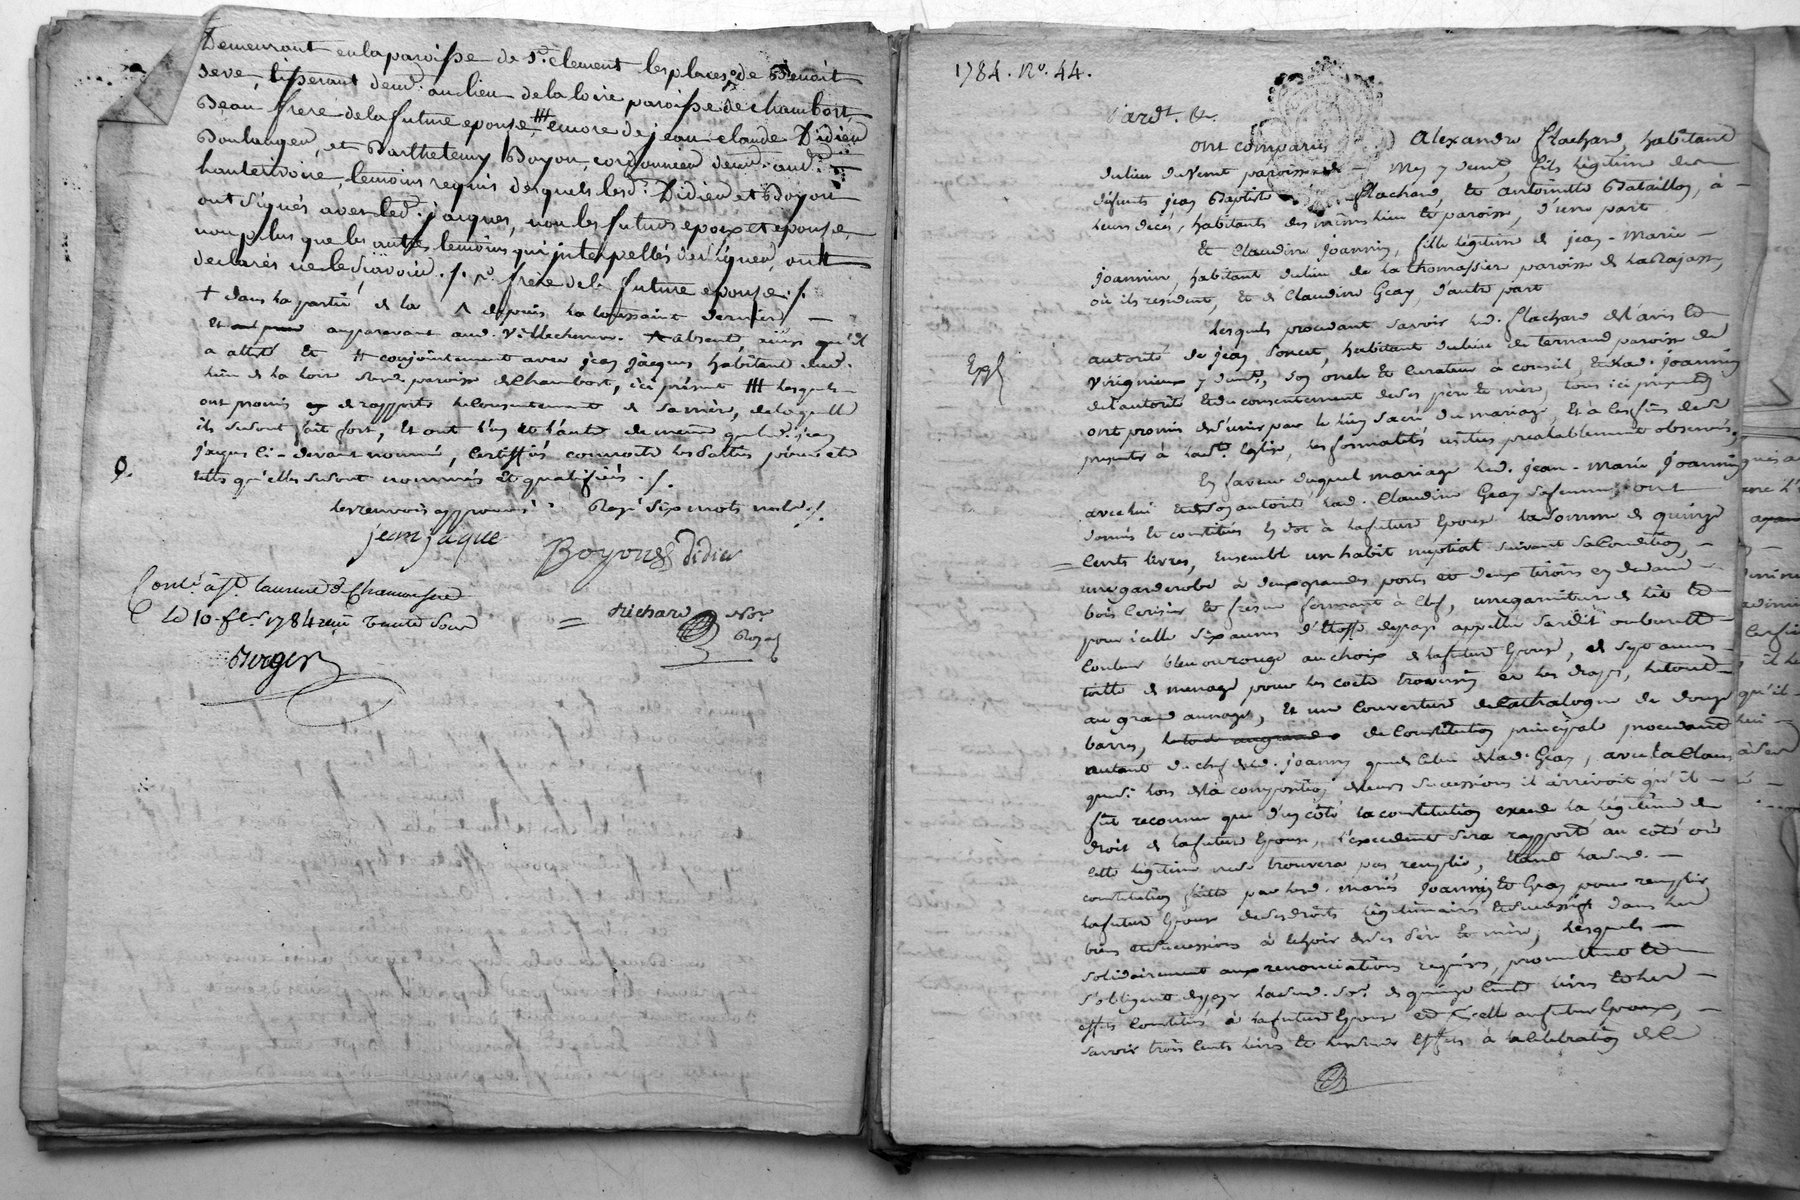 Demeurant en la paroisse de St. Clement les places, de Benoit
Seve, tisserant demt. au lieu de la loire paroisse de chambost
Beau frere de la future epouse ## encore de jean claude Didier
Boulanger, et Barthelemy Boyon, cordonnier demt. aud.
hauterivoire, temoins requis desquels lesd. Didier et Boyon
ont signés avec led. jacques, non les futurs epoux et epouse,
non plus que les autres temoins qui interpellés de signer, ont
declarés ne le sçavoir ./. frere de la future epouse ./.
+ dans la partie de la depuis la toussaint dernier
et auparavant aud. Villechenève. absent, ainsi qu'il
a attesté et # conjointement avec jean jâques habitant dud.
lieu de la loire paroisse de Chambost, ici présent ## lesquels
ont promis de rapporter le consentement de sa mère, de laquelle
ils se sont fait fort, et ont l'un et l'autre de même que led. jean
jaques ci-devant nommé, certiffiés connoitre les parties
telles qu'elles se sont nommées et qualifiées ./.
les renvois approuvés Rayé six mots nuls ./.
jean jaque
Boyon Didier
Contr. à St. Laurent de Chamousset
Le 10 fer. 1784 reçu trente sous
Richard Nore.
Royal
Burger
1784. No. 44.
Pardt. &.
ont comparus Alexandre Flachard, habitant
du lieu du Verut paroisse de Mey y demt., fils légitime de
défunts jean Baptiste Flachard, et antoinette Bataillon, à
leurs décés, habitants des mêmes lieu et paroisse, d'une part
Et Claudine joannin, fille légitime de jean-Marie
joannin, habitant du lieu de la thomassiere paroisse de la Rajasse,
où ils resident, et de Claudine Gray, d'autre part
Lesquels procedant savoir led. flachard de l'avis et
autorité de jean Poncet, habitant du lieu de ternand paroisse de
Virignieux y demt., son oncle et curateur à conseil, et lad. joannin
de l'autorité et du consentement de ses père et mère, tous ici présents
Expé
ont promis de s'unir par le lien sacré du mariage, et à ces fins de se
presenter à lad. Eglise, les formalités usitées préalablement observées.
En faveur duquel mariage led. jean-Marie joannin
avec lui et de son autorité lad. Claudine Gray sa femme, ont
donnés et constitués en dot à la future épouse la somme de quinze
cents livres, ensemble un habit nuptial suivant sa condition,
une garderobe à deux grandes portes et deux tiroirs en dedans
bois cerisier et frêne fermant à clef, une garniture de lit et
pour icelle six aunes d'étoffe du pays appellée sardit ou burette
couleur bleu ou rouge au choix de la future épouse, et sept aunes
toille de menage pour les coëte traversin et les draps, le tout
au grand aunage, et une couverture de Cathalogne de douze
barres, de constitution principal procedant
autant du chef dud. joannin que de celui de lad. Gray, avec la clause
que si lors de la composition de leurs successions il arrivoit qu'il
fût reconnu que d'un côté la constitution excede la légitime de
droit de la future épouse, l'excedent sera rapporté au côté où
cette légitime ne se trouvera pas remplie, étant lad.
constitution faite par lesd. mariés joannin et Gray pour remplir
la future épouse de ses droits légitimaires et successifs dans les
biens et successions à échoir de ses père et mère, lesquels
solidairement aux renonciations requises, promettent et
s'obligent de payer lad. so. de quinze cents livres et les
effets constitués à la future épouse et icelle au futur époux,
savoir trois cents livres et lesdits effets à la célébration de la